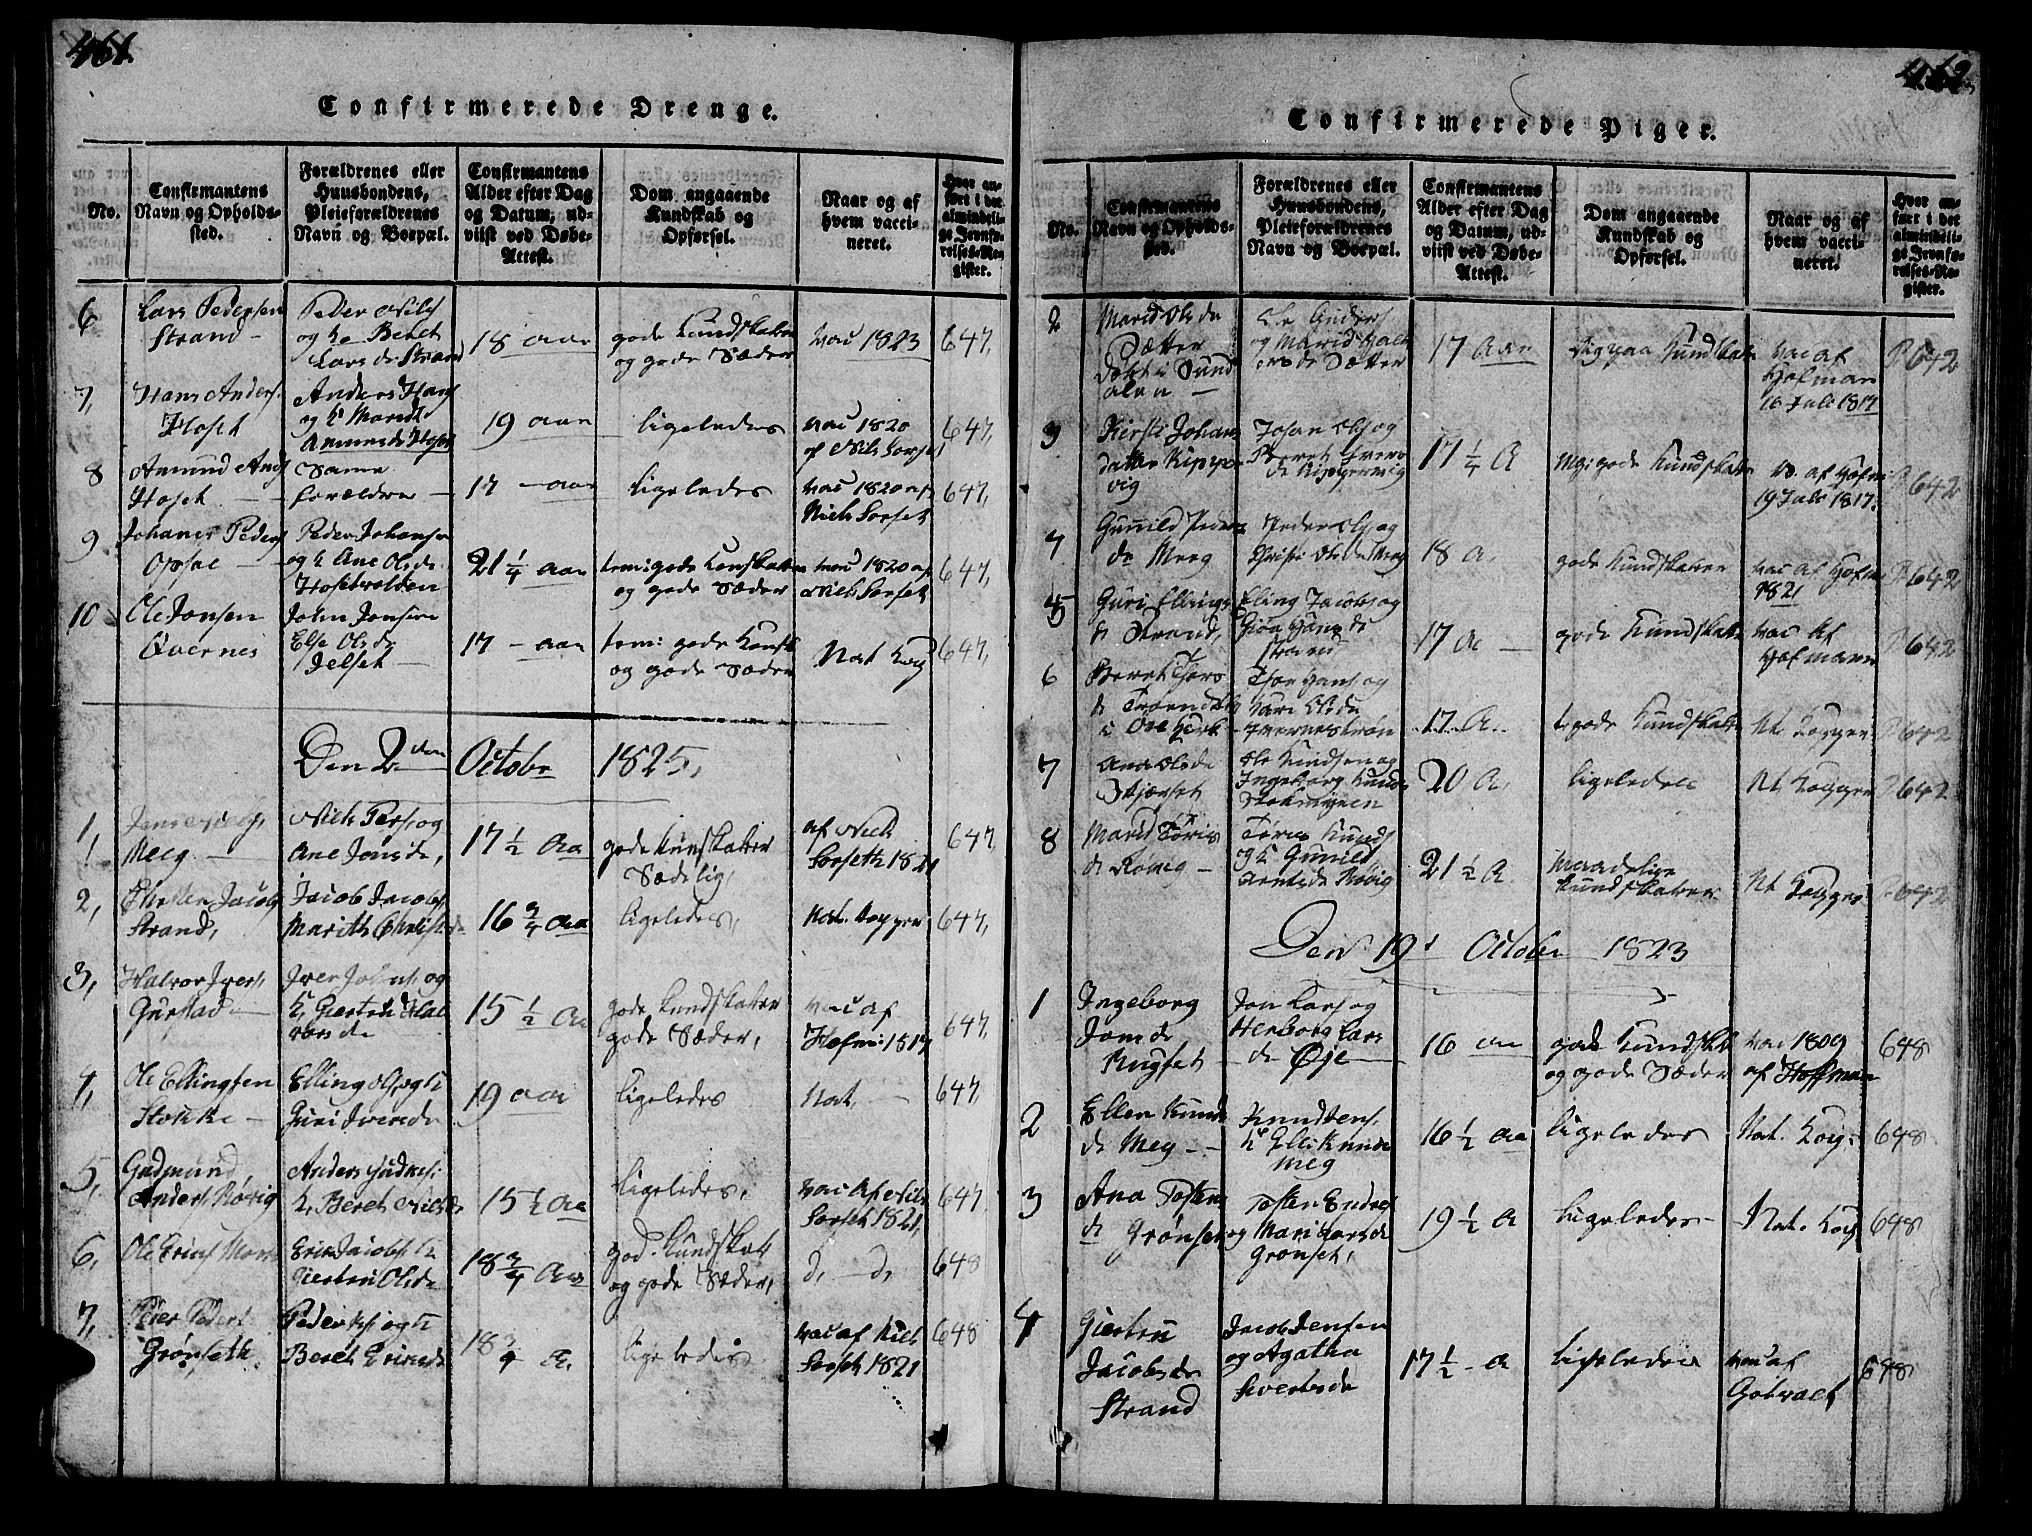 461.
Confirmerede Drenge.
No.
Confirmantens
Navn og Opholds-
sted.
Forældrenes eller
Huusbondens,
Pleieforældrenes
Navn og Boepæl.
Confirmantens
Alder efter Dag
og Datum, ud-
viist ved Døbe-
Attest.
Dom angaaende
Kundskab og
Opførsel.
Naar og af
hvem vacci-
neret.
Hvor an-
ført i det
almindeli-
ge Jevnfø-
relses-Re-
gister.
6
Lars Pedersen
Strand
Peder Nils
og Ko Beret
Lars dr Strand
18 aar
gode Kundskaber
og gode Sæder
vac 1823
647,
7,
Hans Anders.
Hoset
Anders Hans
og K Marit
Amunds d Hoset
19 aar
ligeledes
vac 1820
af Nils Sorset
647,
8
Amund Ands
Hoset
Samme
forældre
17 aar
ligeledes
vac 1820 af
Niels Sorset
647,
9
Johanes Peders
Opsal
Peder Johanse
og K Ane Ols d.
Hosetvolden
21 1/4 aar
tem: gode Kunskaber
og gode Sæder
vac 1820 af
Niels Sorset
647,
10
Ole Jonsen
Qvernes
John Jonsen
Else Ols d.
Jelset
17 - aar
tem: gode Kunsk
og gode Sæder
Nat Kop
647,
Den 2den October 1825,
1,
Meeg
Niels Pers og
Ane Jons de,
17 1/2 Aa
gode Kunskaber
Sædelig,
af Niels
Sorseth 1821
647,
2,
Christen Jacobs
Strand,
Jacob Jacobs
Marith Christ de
16 3/4 Aa
ligeledes,
Nat. Kopper
647,
3,
Halvor Ivers.
Gustad
Iver Johns. og
K, Giertru Hal
vors de
15 1/2 Aa
gode Kundskaber
gode Sæder,
vac af
Hofm: 1817
647,
4,
Ole Ellingsen
Stokke
Elling Ols og K
Guri Ivers de
19 aar
ligeledes
Nat,
647,
5,
Gudmund
Anders. Røvig
Anders Gudmes:
K, Beret Niels d
15 1/2 Aa
ligeledes,
vac af Nils
Sorset 1821,
647,
6,
Ole Erichs Moen
Erich Jacobs K
Giertru Ols de
18 3/4 Aa
god Kundskab
og gode Sæder,
d, d,
648
7,
Peder Peders
Grønseth
Peder og K
Beret Erichs de
18 3/4 A.
ligeledes
vac af Niels
Sorset 1821
648
462.
Confirmerede Piger.
No.
Confirmantens
Navn og Opholds-
sted.
Forældrenes eller
Huusbondens,
Pleieforældrenes
Navn og Boepæl.
Confirmantens
Alder efter Dag
og Datum, ud-
viist ved Døbe-
Attest.
Dom angaaende
Kundskab og
Opførsel.
Naar og af
hvem vacci-
neret.
Hvor an-
ført i det
almindeli-
ge Jevnfø-
relses-Re-
gister.
2
Marid Ols de
Sætter
i Sund
alen
Ole Anders
og Marid Hal
vors de Sætter
17 Aar
Kundskab
vac af
Hofman
16 Juli 1817
642
3
Kirsti Johans
datter Kipper
vig
Johan Ols og
Beret Ivers
d Kippervig
17 1/4 A
Mg: gode Kundskaber
v. af Hofm
19 Juli 1817.
642
4
Gunild Peders
de Meeg
Peder Ols og
Ols de Meeg
18 A.
gode Kundskaber
vac af Hofm
1821
642
5
Guri Ellings
d Strand,
Eling Jacobs og
Giøa Hans de
Strand
17 A
gode Kundskaber
vac af
Hofmann
642
6
Beret Thors
d
i Øre Kirk
Thor Hans og
Kari Ols de
17 A.
t. gode Kundskaber
Nt. Kopper
642
7
Ana Ols de
Ole Knudsen og
Ingeborg Knuds
20 A.
ligeledes
Nt Kopper
642
8
Marid Tøris
d Røvig
Tøris Knuds
og K Gunild
Arnts de Røvig
21 1/2 A
Maadelige
Kundskaber
Nt Kopper
642
Den 19d October 1823
1
Ingeborg
Jons de
Rugset
Jon Lars og
Henborg Lars
de Øye
16 aa
gode Kundskab
og gode Sæder
vac 1809
af Hoffman
648
2
Ellen Knuds
d Meg
Knud Jens,
K Elli Knuds
Meg
16 1/2 aa
ligeledes
Nat. Kop.
648
3
Ana Tosten
d
Grønset
Tosten Endres
og Mari Lars de
Grønset,
19 1/2 A
ligeledes
Nat. Kop
648
4
Giertru
Jacobs de
Strand
Jacob Jensen
og Agatha
Siverts de
17 1/2 A
ligeledes
vac af
Gotvalt
648